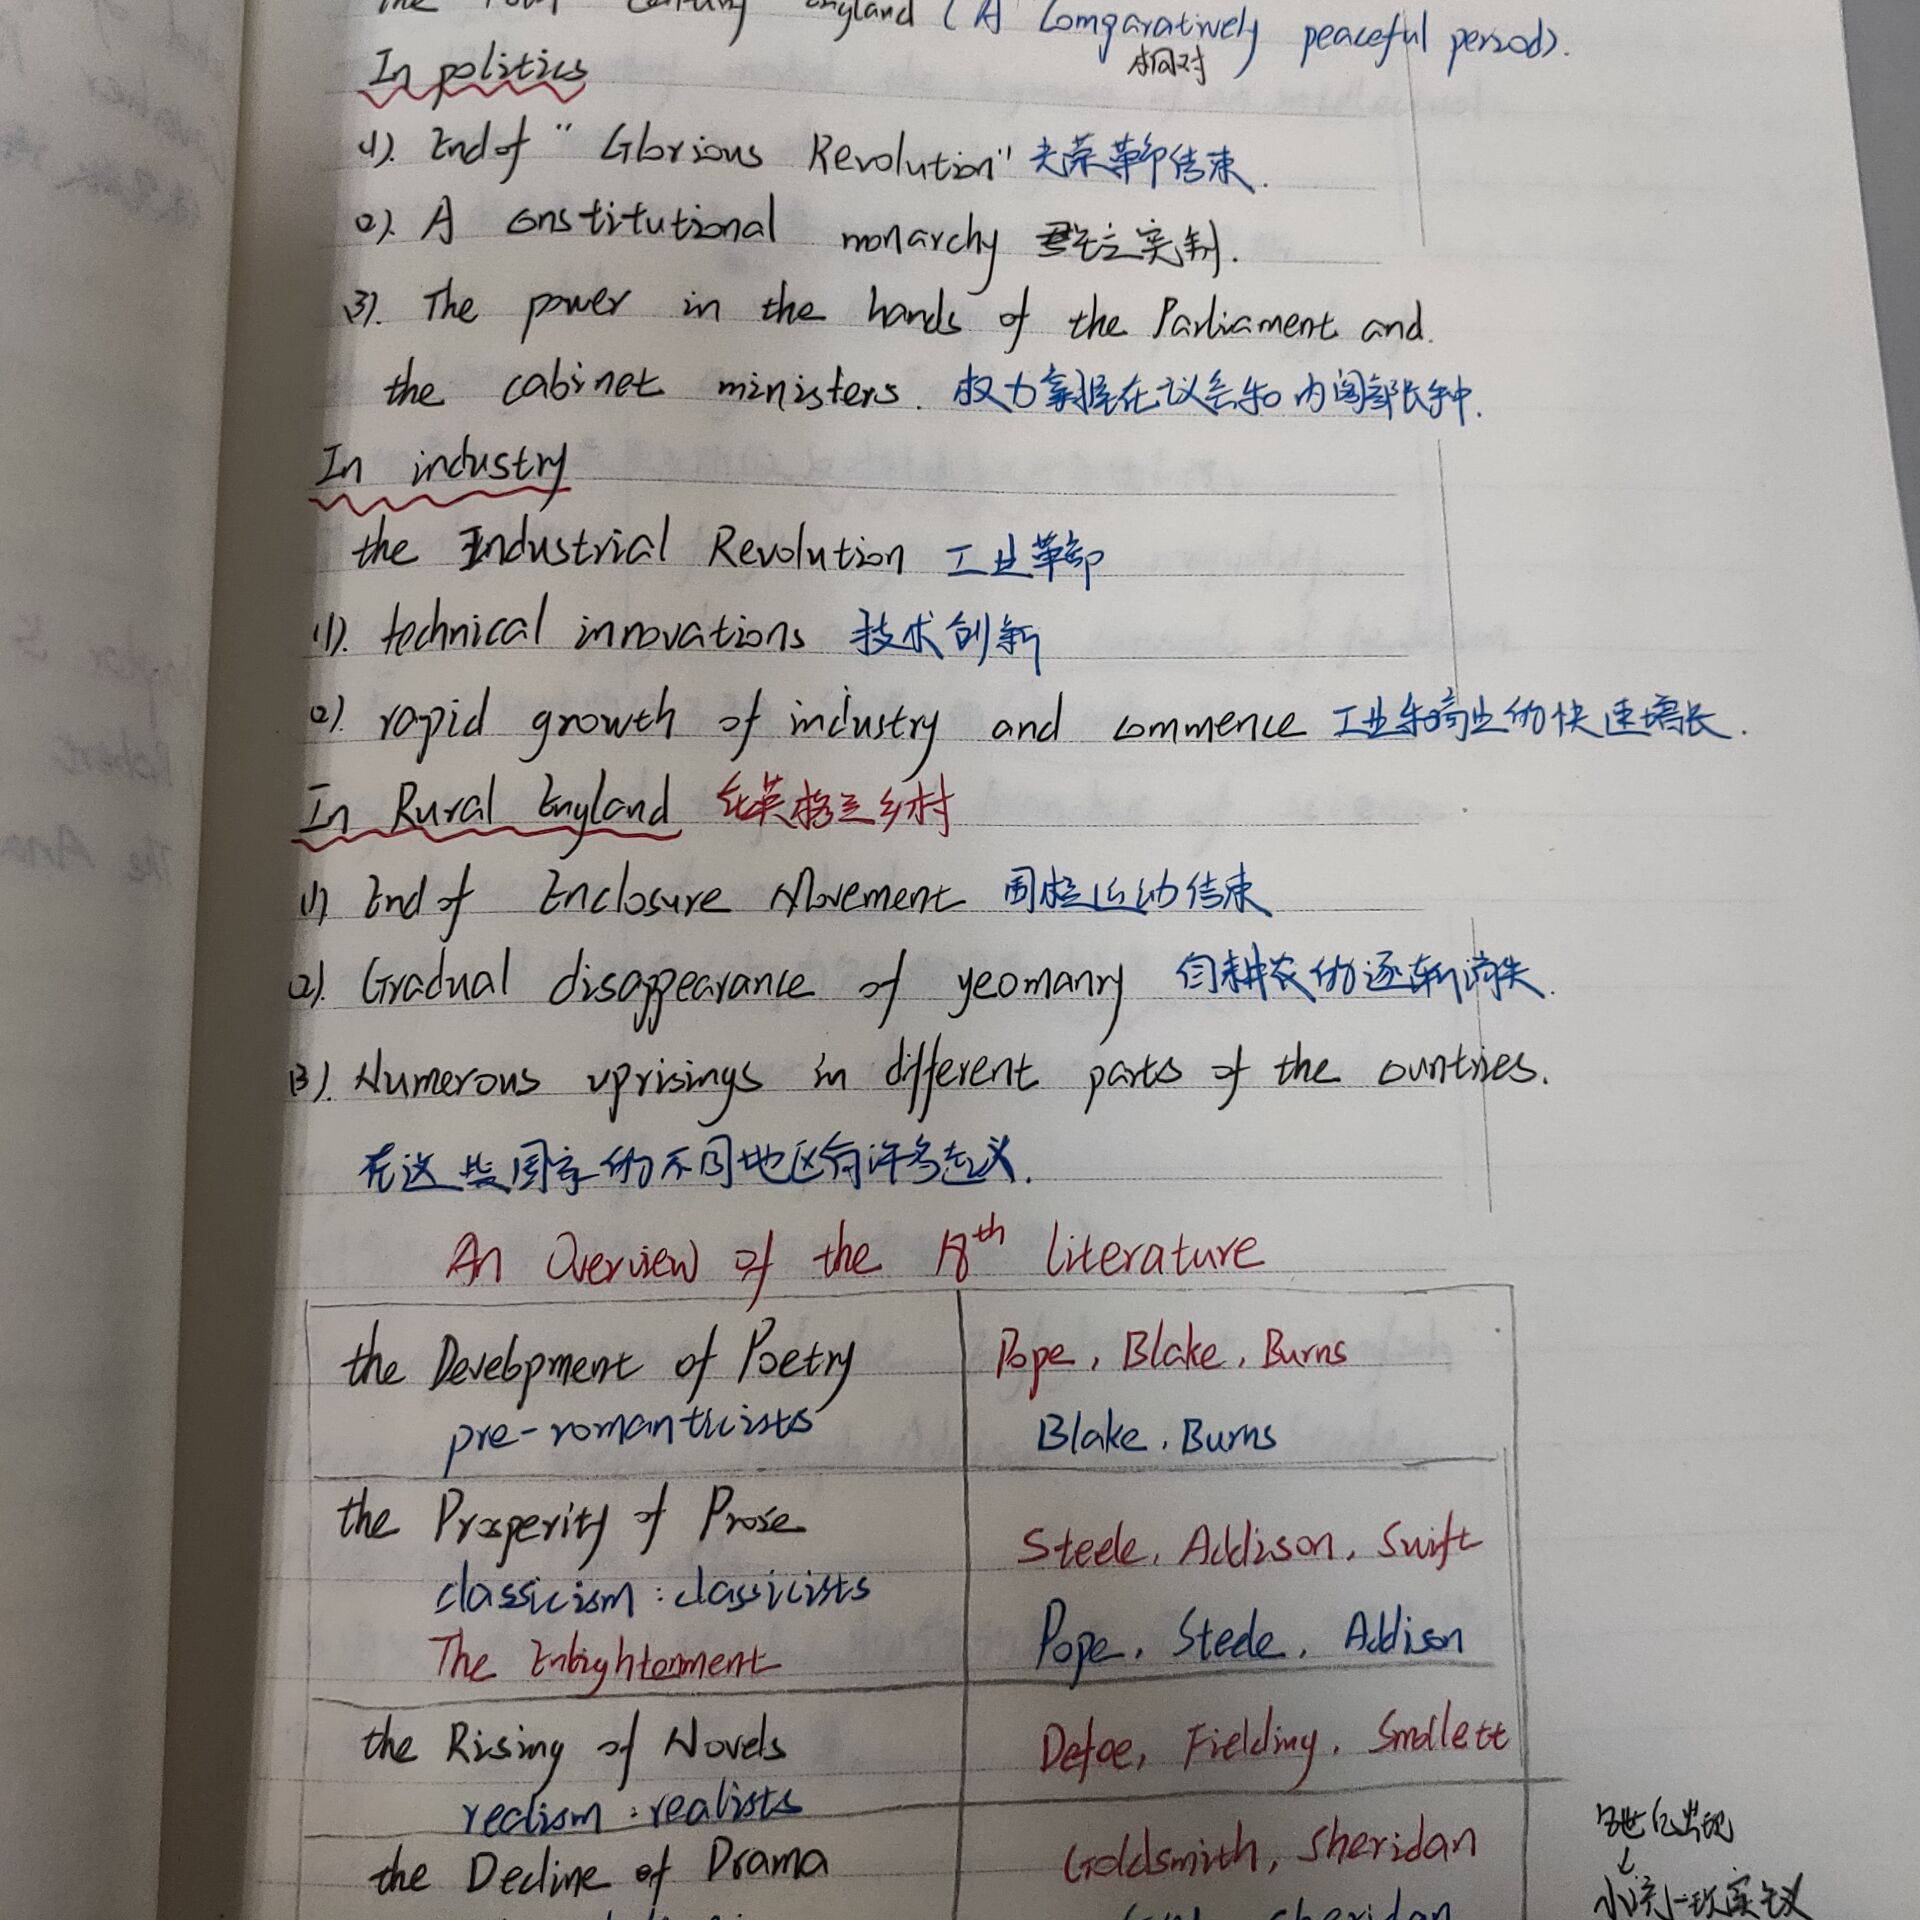 England (A Comparatively peaceful period).
相对
In politics
(1). End of "Glorious Revolution" 光荣革命结束.
(2). A constitutional monarchy 君主立宪制.
(3). The power in the hands of the Parliament and.
the cabinet ministers. 权力掌握在议会和内阁部长手中.
In industry
the Industrial Revolution 工业革命
(1). technical innovations 技术创新
(2). rapid growth of industry and commence 工业和商业的快速增长.
In Rural England 在英格兰乡村
(1) End of Enclosure Movement 圈地运动结束
(2). Gradual disappearance of yeomanry 自耕农的逐渐消失.
(3). Numerous uprisings in different parts of the countries.
在这些国家的不同地区有许多起义.
An Overview of the 18th literature
the Development of Poetry Pope, Blake, Burns
pre-romanticists Blake, Burns
the Prosperity of Prose Steele, Addison, Swift
classicism: classicists
The Enlightenment Pope, Steele, Addison
the Rising of Novels Defoe, Fielding, Smollett
realism: realists
the Decline of Drama Goldsmith, Sheridan
sheridan
出现
↓
小说 现实主义